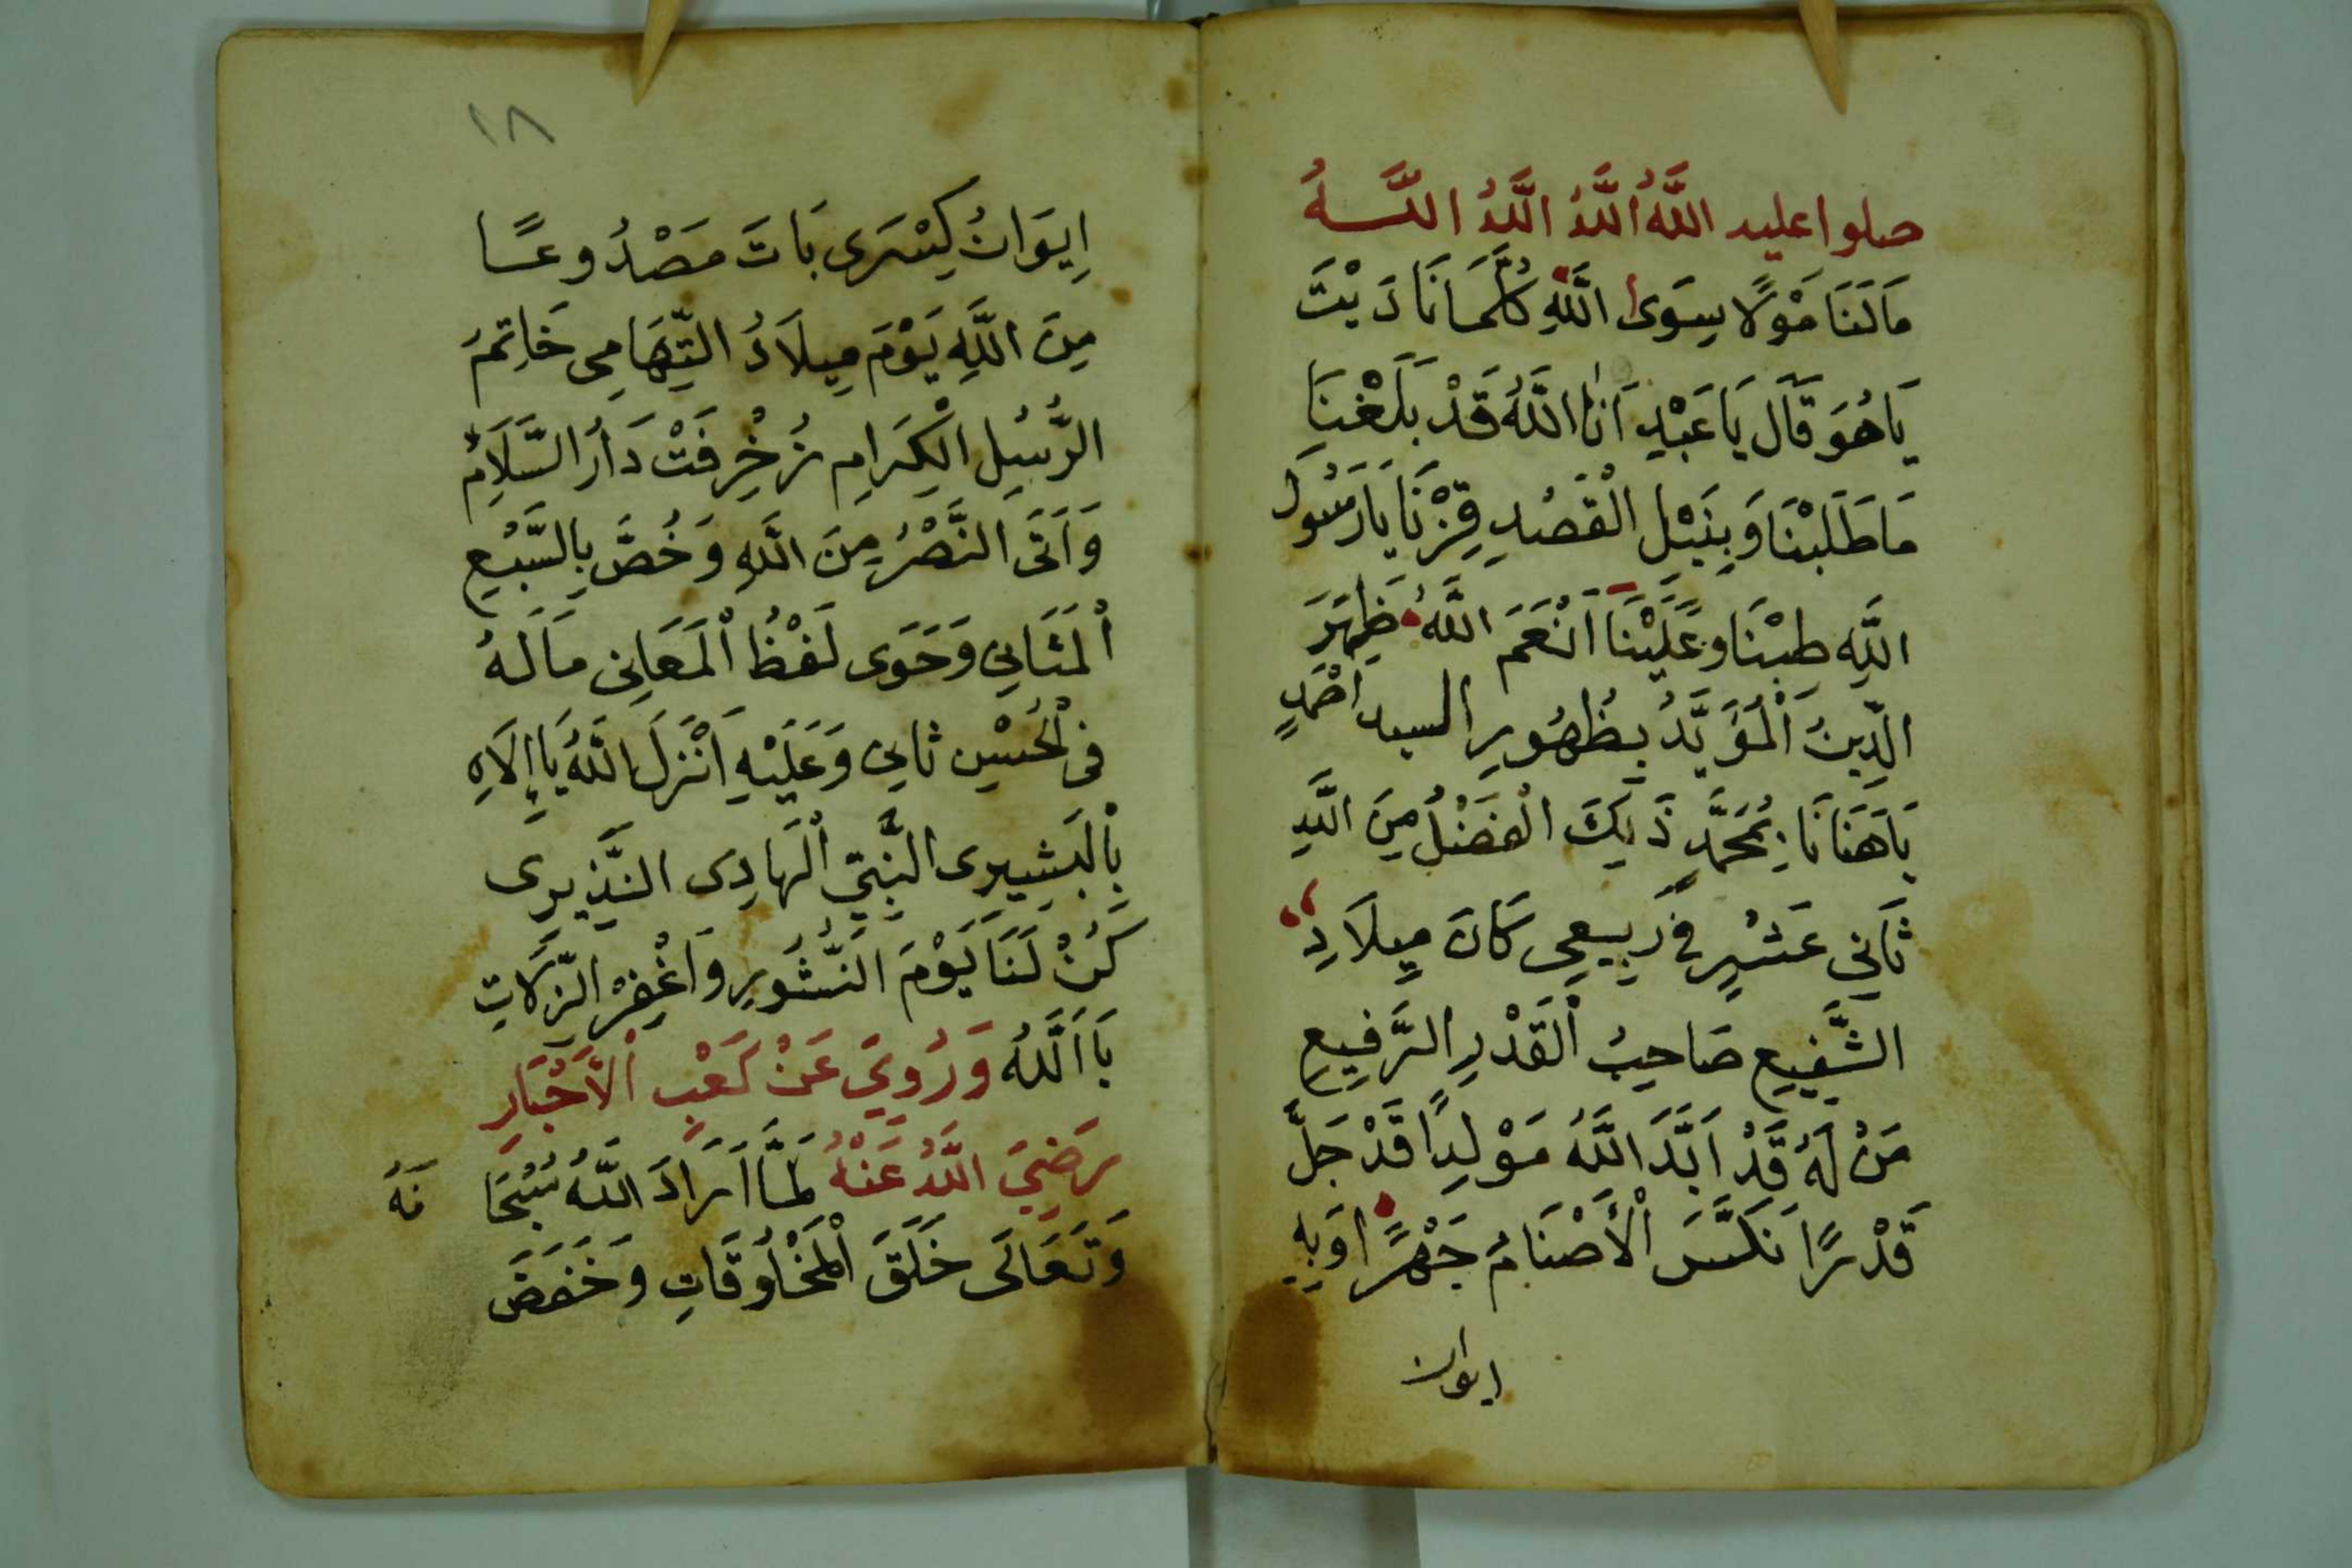 صلوا عليه اللَّهُ اللَّهُ اللَّهُ اللَّـــهُ
مَالَنَا مَوْلًا سِوَى اللَّهِ كُلَّمَا نَادَيْتَ
يَا هُوَ قَالَ يَا عَبْدِ اَنَا اللَّهُ قَدْ بَلَغْنَا
مَا طَلَبْنَا وَبِنَيْلِ الْقَصْدِ فِزْنَا يَا رَسُولَ
اللَّهِ طِبْنَا وَعَلَيْنَا اَنْعَمَ اللَّهُ ظَهَرَ
الدِّينُ الْمُؤَيَّدُ بِظُهُورِ السيد اَحْمَدٍ
يَا هَنَانَا بِمُحَمَّدٍ ذَلِكَ الْفَضْلُ مِنَ اللَّهِ
ثَانِي عَشْرٍ فِي رَبِيعِي كَانَ مِيلَادِ
الشَّفِيعِ صَاحِبُ الْقَدْرِ الرَّفِيعِ
مَنْ لَهُ قَدْ اَيَّدَ اللَّهُ مَوْلِدًا قَدْ جَلَّ
قَدْرًا نَكَّسَ الْأَصْنَامُ جَهْرًا وَبِهِ
ايوان
١٨
اِيوَانُ كِسْرَى بَاتَ مَصْدُوعًـــا
مِنَ اللَّهِ يَوْمَ مِيلَادُ التِّهَامِى خَاتِمُ
الرُّسُلِ الْكِرَامِ زُخْرِفَتْ دَارُ السَّلَامُ
وَاَتَى النَّصْرُ مِنَ اللَّهِ وَخُصَّ بِالسَّبْعِ
الْمَثَانِي وَحَوَى لَفْظُ الْمَعَانِى مَا لَهُ
فِى الْحُسْنِ ثَانِي وَعَلَيْهِ اَنْزَلَ اللَّهُ يَا اِلَاهِ
بِالْبَشِيرِى النَّبِيِّ الْهَادِى النَّذِيرِى
كُنْ لَنَا يَوْمَ النُّشُورِ وَاغْفِرْ الزَّلَاتِ
يَا اَللَّهُ وَرُوِيَ عَنْ كَعْبِ الْأَحْبَارِ
رَضِيَ اللَّهُ عَنْهُ لَمَّا اَرَادَ اللَّهُ سُبْحَا نَهُ
وَتَعَالَى خَلَقَ الْمَخْلُوقَاتِ وَخَفَضَ